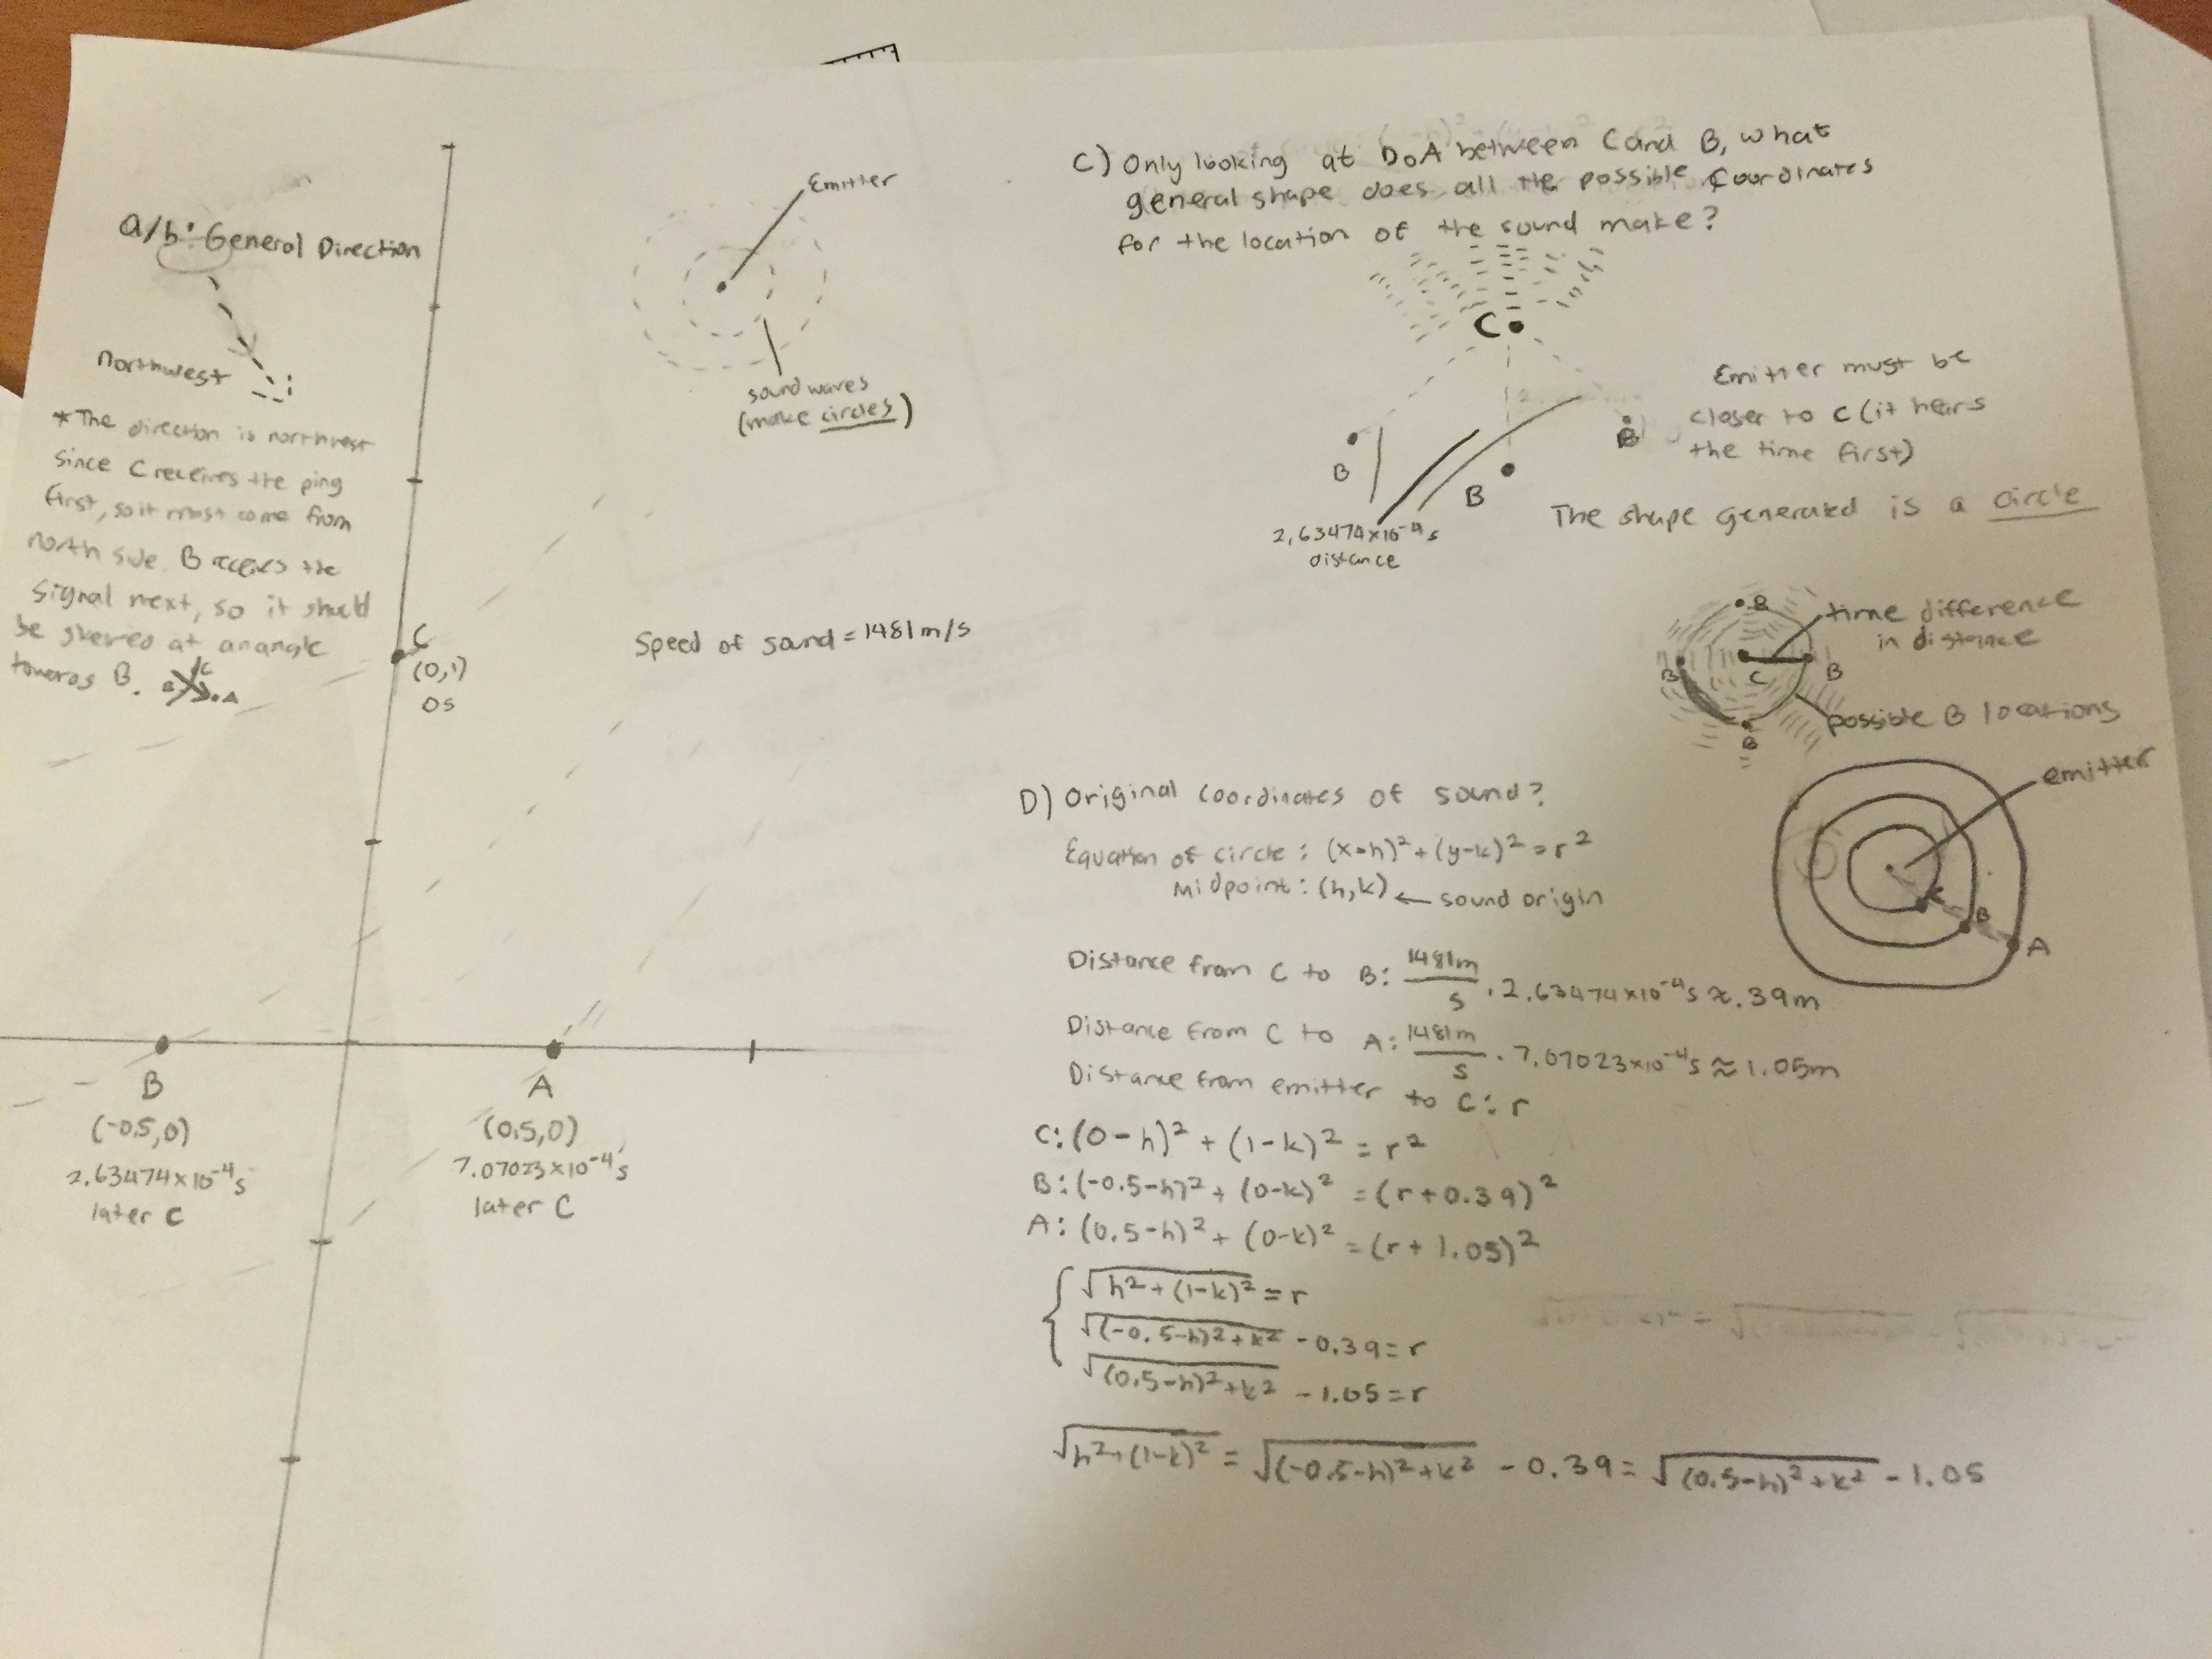 a/b: General Direction
northwest
*The direction is northwest
since C receives the ping
first, so it must come from
north side. B receives the
signal next, so it should
be skewed at an angle
towards B.
B
C
A
C
(0,1)
0s
B
(-0.5,0)
2.63474x10⁻⁴s
later C
A
(0.5,0)
7.07023x10⁻⁴s
later C
Emitter
sound waves
(make circles)
Speed of sound = 1481m/s
C) Only looking at DoA between C and B, what
general shape does all the possible coordinates
for the location of the sound make?
C
B
B
B
2.63474x10⁻⁴s
distance
Emitter must be
closer to C (it hears
the time first)
The shape generated is a circle
B
B
C
B
B
time difference
in distance
possible B locations
D) Original coordinates of sound?
Equation of circle: (x-h)²+(y-k)²=r²
Midpoint: (h,k) ← sound origin
emitter
C
B
A
Distance from C to B: 1481m/s · 2.63474x10⁻⁴s ≈ .39m
Distance from C to A: 1481m/s · 7.07023x10⁻⁴s ≈ 1.05m
Distance from emitter to C: r
C: (0-h)² + (1-k)² = r²
B: (-0.5-h)² + (0-k)² = (r+0.39)²
A: (0.5-h)² + (0-k)² = (r+1.05)²
√(h²+(1-k)²) = r
√((-0.5-h)²+k²) - 0.39 = r
√((0.5-h)²+k²) - 1.05 = r
√(h²+(1-k)²) = √((-0.5-h)²+k²) - 0.39 = √((0.5-h)²+k²) - 1.05